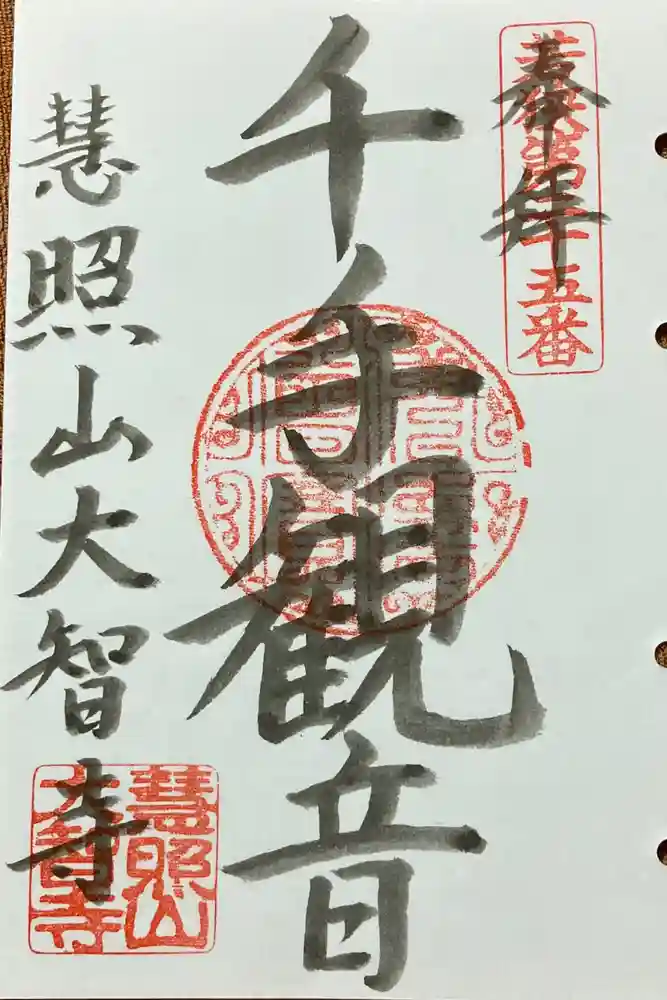 奉拝
若狭第二十五番
千手観音
慧照山大智寺
慧照山
大智寺